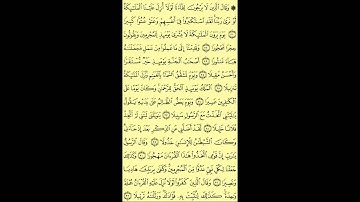 ۞ وَقَالَ ٱلَّذِينَ لَا يَرۡجُونَ لِقَآءَنَا لَوۡلَآ أُنزِلَ عَلَيۡنَا ٱلۡمَلَٰٓئِكَةُ
أَوۡ نَرَىٰ رَبَّنَاۗ لَقَدِ ٱسۡتَكۡبَرُواْ فِيٓ أَنفُسِهِمۡ وَعَتَوۡ عُتُوّٗا كَبِيرٗا
٢١ يَوۡمَ يَرَوۡنَ ٱلۡمَلَٰٓئِكَةَ لَا بُشۡرَىٰ يَوۡمَئِذٖ لِّلۡمُجۡرِمِينَ وَيَقُولُونَ
حِجۡرٗا مَّحۡجُورٗا ٢٢ وَقَدِمۡنَآ إِلَىٰ مَا عَمِلُواْ مِنۡ عَمَلٖ فَجَعَلۡنَٰهُ
هَبَآءٗ مَّنثُورًا ٢٣ أَصۡحَٰبُ ٱلۡجَنَّةِ يَوۡمَئِذٍ خَيۡرٞ مُّسۡتَقَرّٗا
وَأَحۡسَنُ مَقِيلٗا ٢٤ وَيَوۡمَ تَشَقَّقُ ٱلسَّمَآءُ بِٱلۡغَمَٰمِ وَنُزِّلَ ٱلۡمَلَٰٓئِكَةُ
تَنزِيلًا ٢٥ ٱلۡمُلۡكُ يَوۡمَئِذٍ ٱلۡحَقُّ لِلرَّحۡمَٰنِۚ وَكَانَ يَوۡمًا عَلَى
ٱلۡكَٰفِرِينَ عَسِيرٗا ٢٦ وَيَوۡمَ يَعَضُّ ٱلظَّالِمُ عَلَىٰ يَدَيۡهِ يَقُولُ
يَٰلَيۡتَنِي ٱتَّخَذۡتُ مَعَ ٱلرَّسُولِ سَبِيلٗا ٢٧ يَٰوَيۡلَتَىٰ لَيۡتَنِي لَمۡ أَتَّخِذۡ
فُلَانًا خَلِيلٗا ٢٨ لَّقَدۡ أَضَلَّنِي عَنِ ٱلذِّكۡرِ بَعۡدَ إِذۡ جَآءَنِيۗ
وَكَانَ ٱلشَّيۡطَٰنُ لِلۡإِنسَٰنِ خَذُولٗا ٢٩ وَقَالَ ٱلرَّسُولُ
يَٰرَبِّ إِنَّ قَوۡمِي ٱتَّخَذُواْ هَٰذَا ٱلۡقُرۡءَانَ مَهۡجُورٗا ٣٠ وَكَذَٰلِكَ
جَعَلۡنَا لِكُلِّ نَبِيٍّ عَدُوّٗا مِّنَ ٱلۡمُجۡرِمِينَۗ وَكَفَىٰ بِرَبِّكَ هَادِيٗا
وَنَصِيرٗا ٣١ وَقَالَ ٱلَّذِينَ كَفَرُواْ لَوۡلَا نُزِّلَ عَلَيۡهِ ٱلۡقُرۡءَانُ جُمۡلَةٗ
وَٰحِدَةٗۚ كَذَٰلِكَ لِنُثَبِّتَ بِهِۦ فُؤَادَكَۖ وَرَتَّلۡنَٰهُ تَرۡتِيلٗا ٣٢